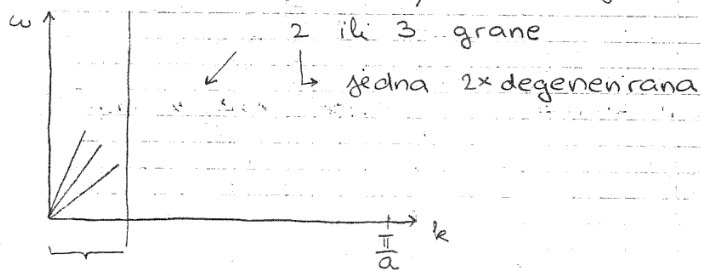 ω
2 ili 3 grane
jedna 2x degenerirana
k
π/a